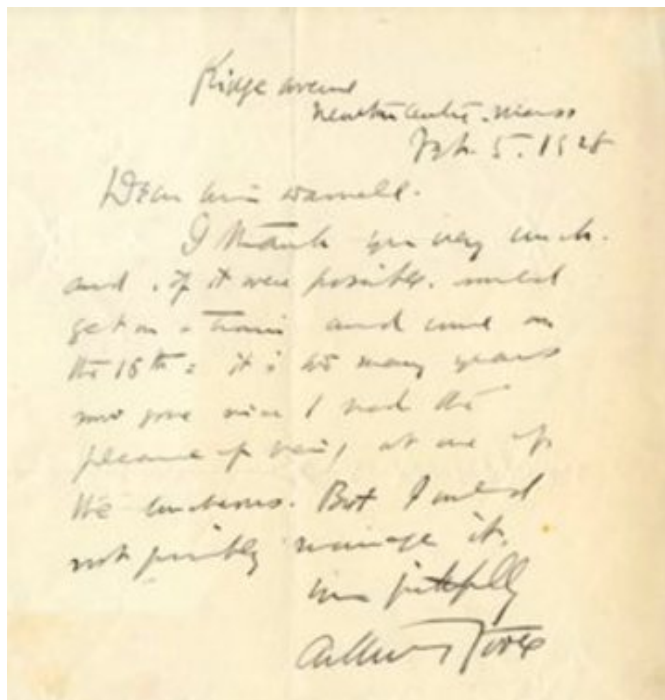 Ridge Avenue
Newton Centre. Mass
Feb. 5. 1928
Dear Miss
I thank you very much.
and, if it were possible, would
get on a train and come on
the 16th: it is so many years
now gone since I had the
pleasure of being at one of
the luncheons. But I could
not possibly manage it.
Yours faithfully
Arthur Foote